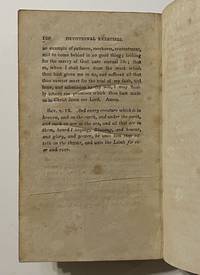 DEVOTIONAL EXERCISES.
an example of patience, meekness, contentment,
and to come behind in no good thing; looking
for the mercy of God unto eternal life; that
so, when I shall have done the work which
thou hast given me to do, and suffered all that
thou carvest meet for the trial of my faith, and
hope, and submission to thy will, I may finally
the promises which thou hast made
in Christ Jesus our Lord. Amen.
Rev. v. 13. And every creature which is in
heaven, and on the earth, and under the earth,
and such as are in the sea, and all that are in
them, heard I saying, Blessing, and honour,
and glory, and power, be unto him that sitteth
on the throne, and unto the Lamb for ever
and ever.